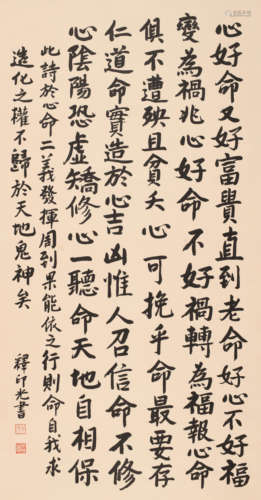 心好命又好富貴直到老命好心不好福
變為禍兆心好命不好禍轉為福報心命
俱不遭殃且貧夭心可挽乎命最要存
仁道命實造於心吉凶惟人召信命不修
心陰陽恐虛矯修心一聽命天地自相保
此詩於心命二義發揮周到果能依之行則命自我求
造化之權不歸於天地鬼神矣
釋印光書